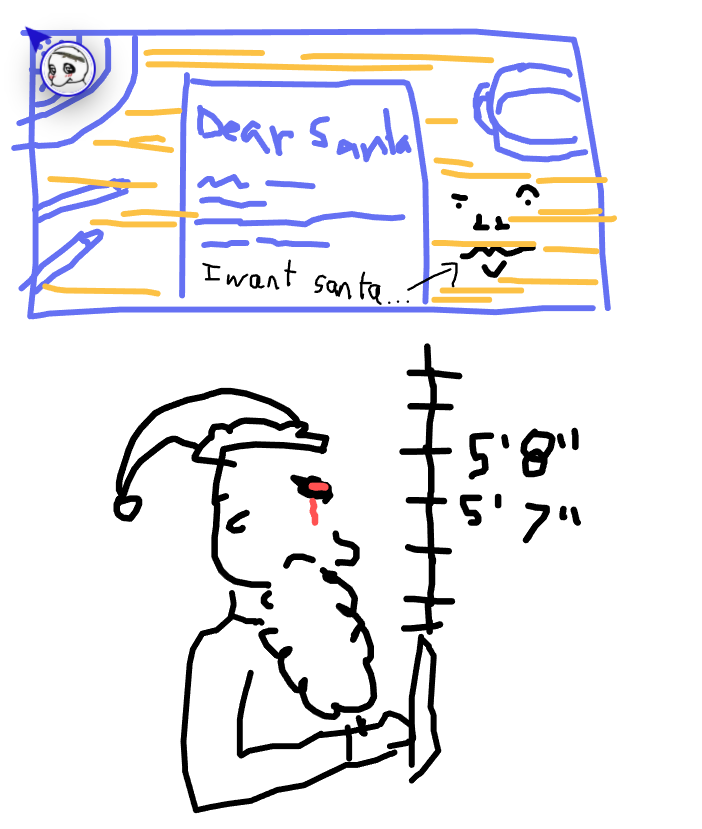 Dear Santa
I want santa...
5'8"
5'7"